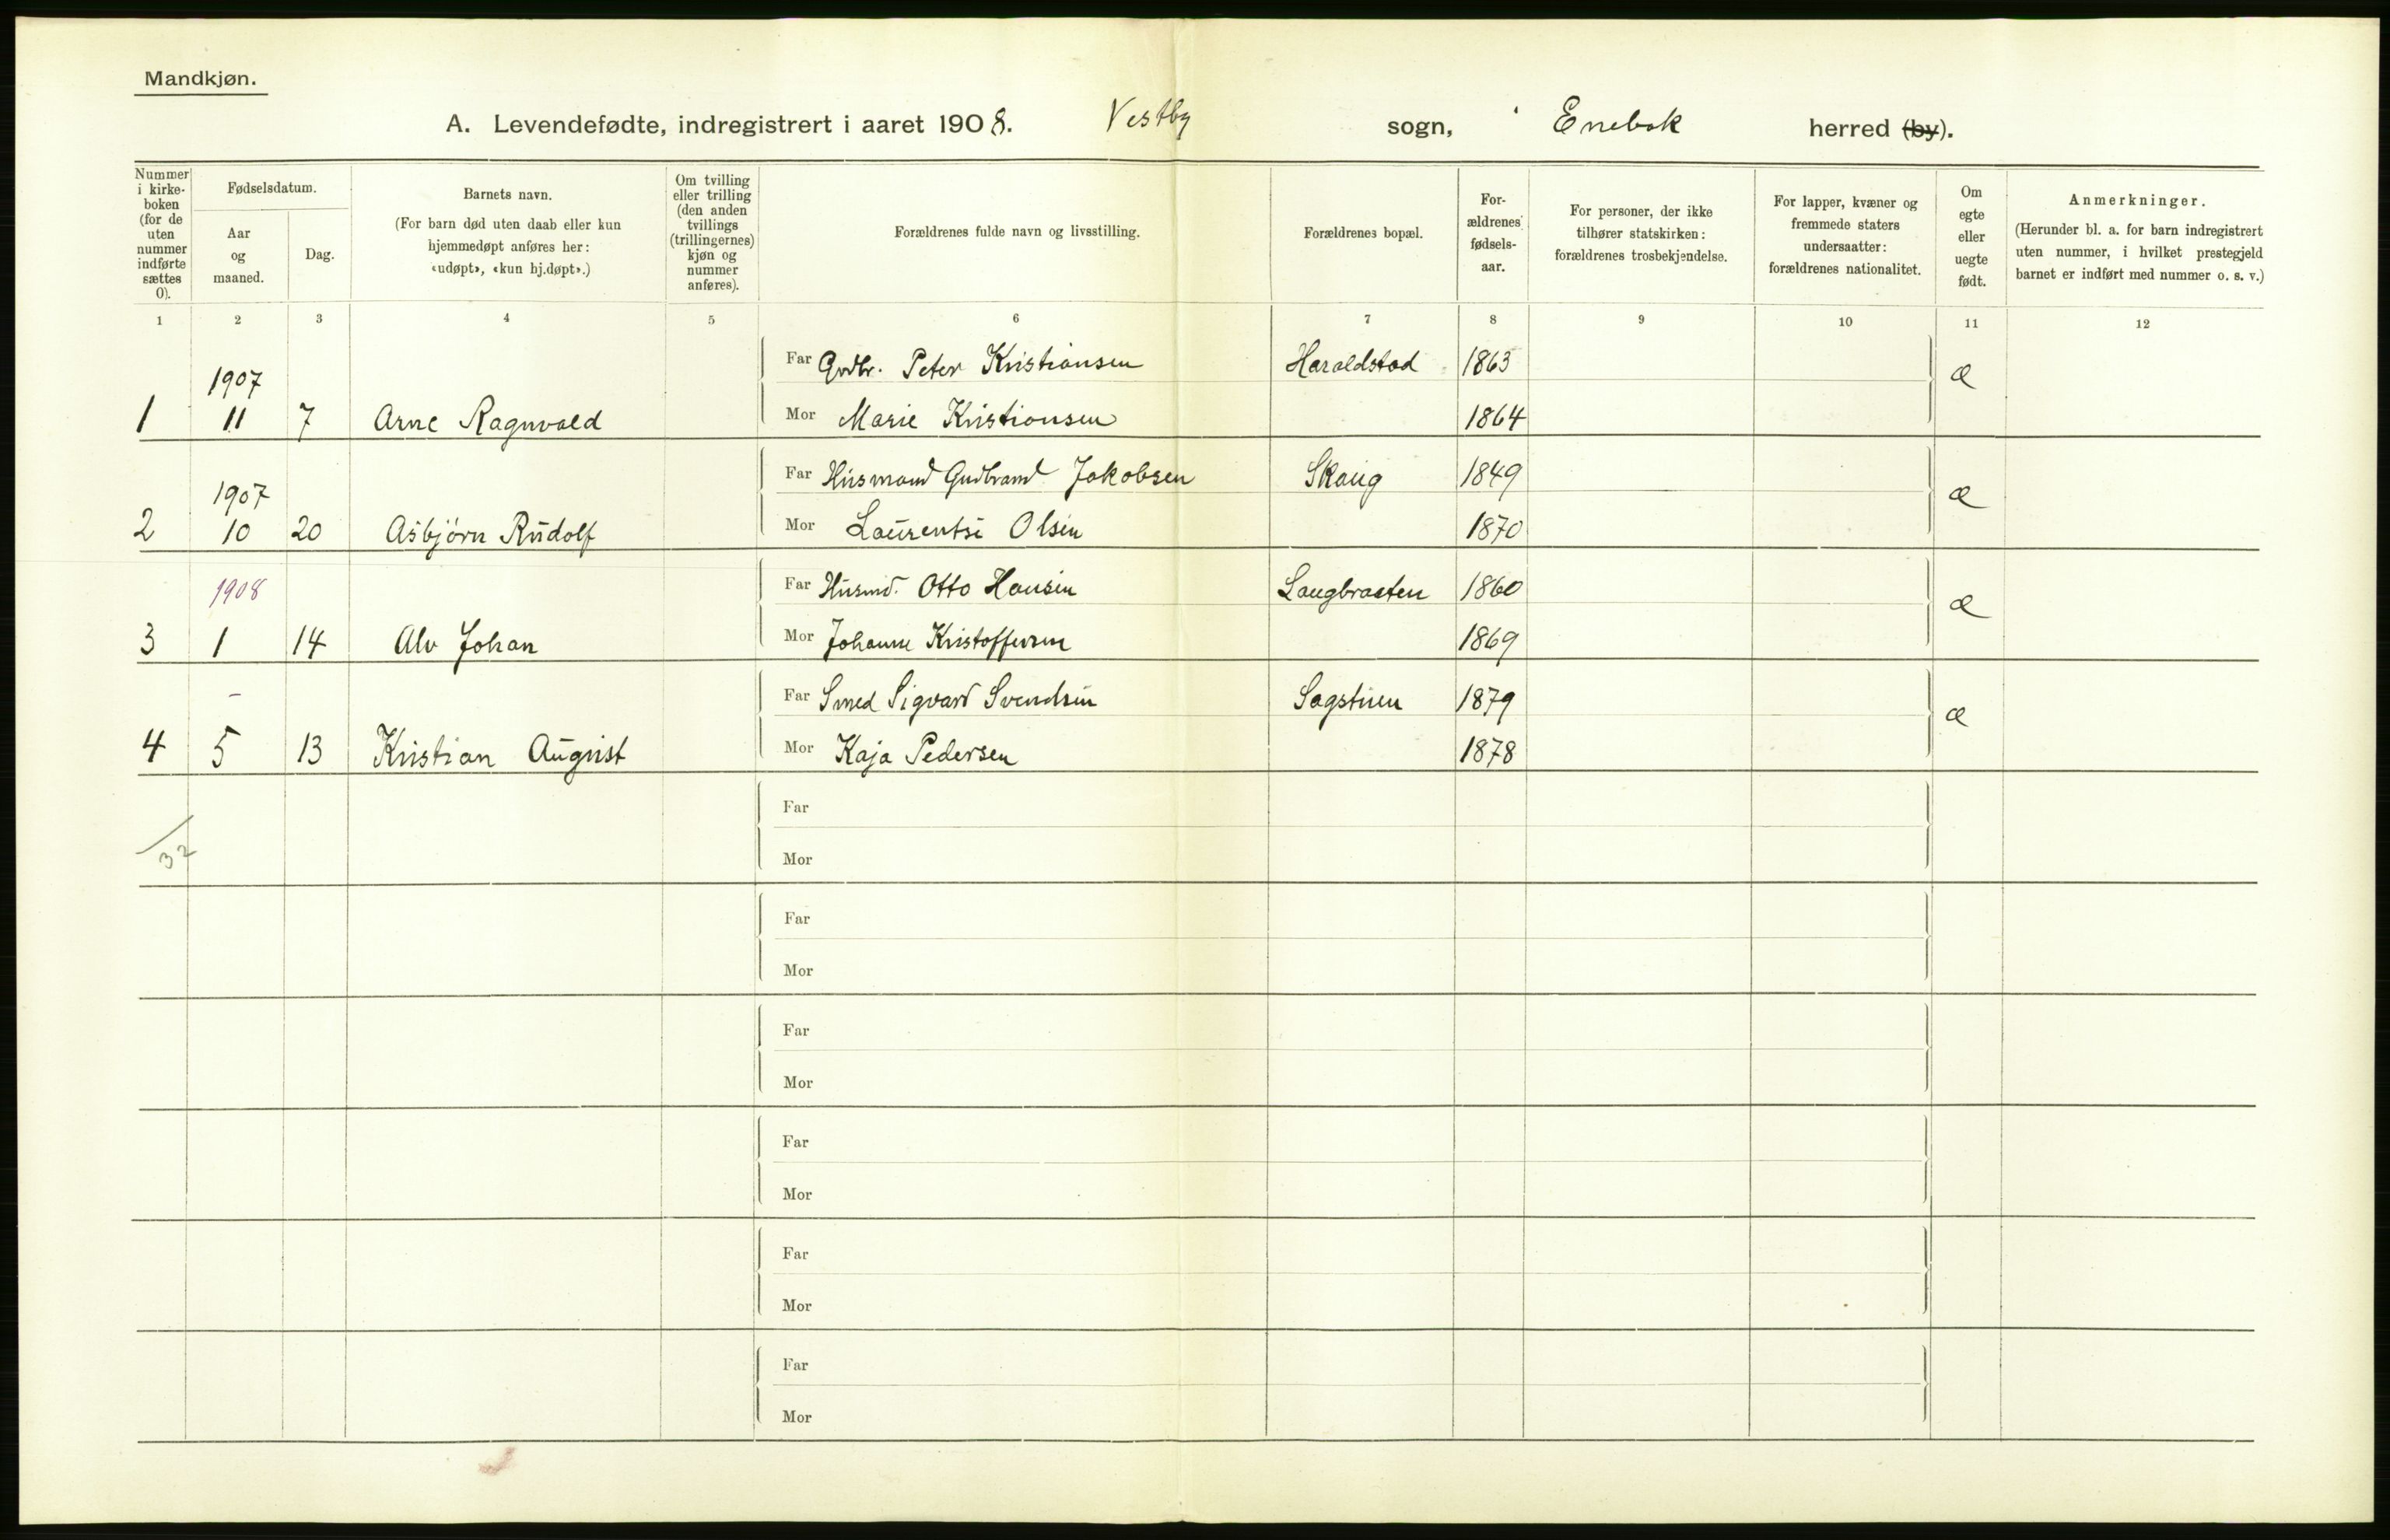 Mandkjøn.
A. Levendefødte, indregistrert i aaret 1908. Vestby sogn, i Enebak herred (by).
Nummer i kirke-boken (for de uten nummer indførte sættes 0).
Fødselsdatum.
Aar og maaned.
Dag.
Barnets navn.
(For barn død uten daab eller kun hjemmedøpt anføres her: «udøpt», «kun hj.døpt».)
Om tvilling eller trilling (den anden tvillings (trillingernes) kjøn og nummer anføres).
Forældrenes fulde navn og livsstilling.
Forældrenes bopæl.
For-ældrenes fødsels-aar.
For personer, der ikke tilhører statskirken: forældrenes trosbekjendelse.
For lapper, kvæner og fremmede staters undersaatter: forældrenes nationalitet.
Om egte eller uegte født.
Anmerkninger.
(Herunder bl. a. for barn indregistrert uten nummer, i hvilket prestegjeld barnet er indført med nummer o. s. v.)
1 2 3 4 5 6 7 8 9 10 11 12
1907 Far Grdbr. Peter Kristiansen Haraldstad 1863 æ
1 11 7 Arne Ragnvald Mor Marie Kristiansen 1864
1907 Far Husmand Gudbrand Jakobsen Skaug 1849 æ
2 10 20 Asbjörn Rudolf Mor Laurentse Olsen 1870
1908 Far Husmd. Otto Hansen Laugbraaten 1860 æ
3 1 14 Alv Johan Mor Johanne Kristoffersen 1869
- Far Smed Sigvard Svendsen Sagstuen 1879 æ
4 5 13 Kristian August Mor Kaja Pedersen 1878
Far
32
Mor
Far
Mor
Far
Mor
Far
Mor
Far
Mor
Far
Mor